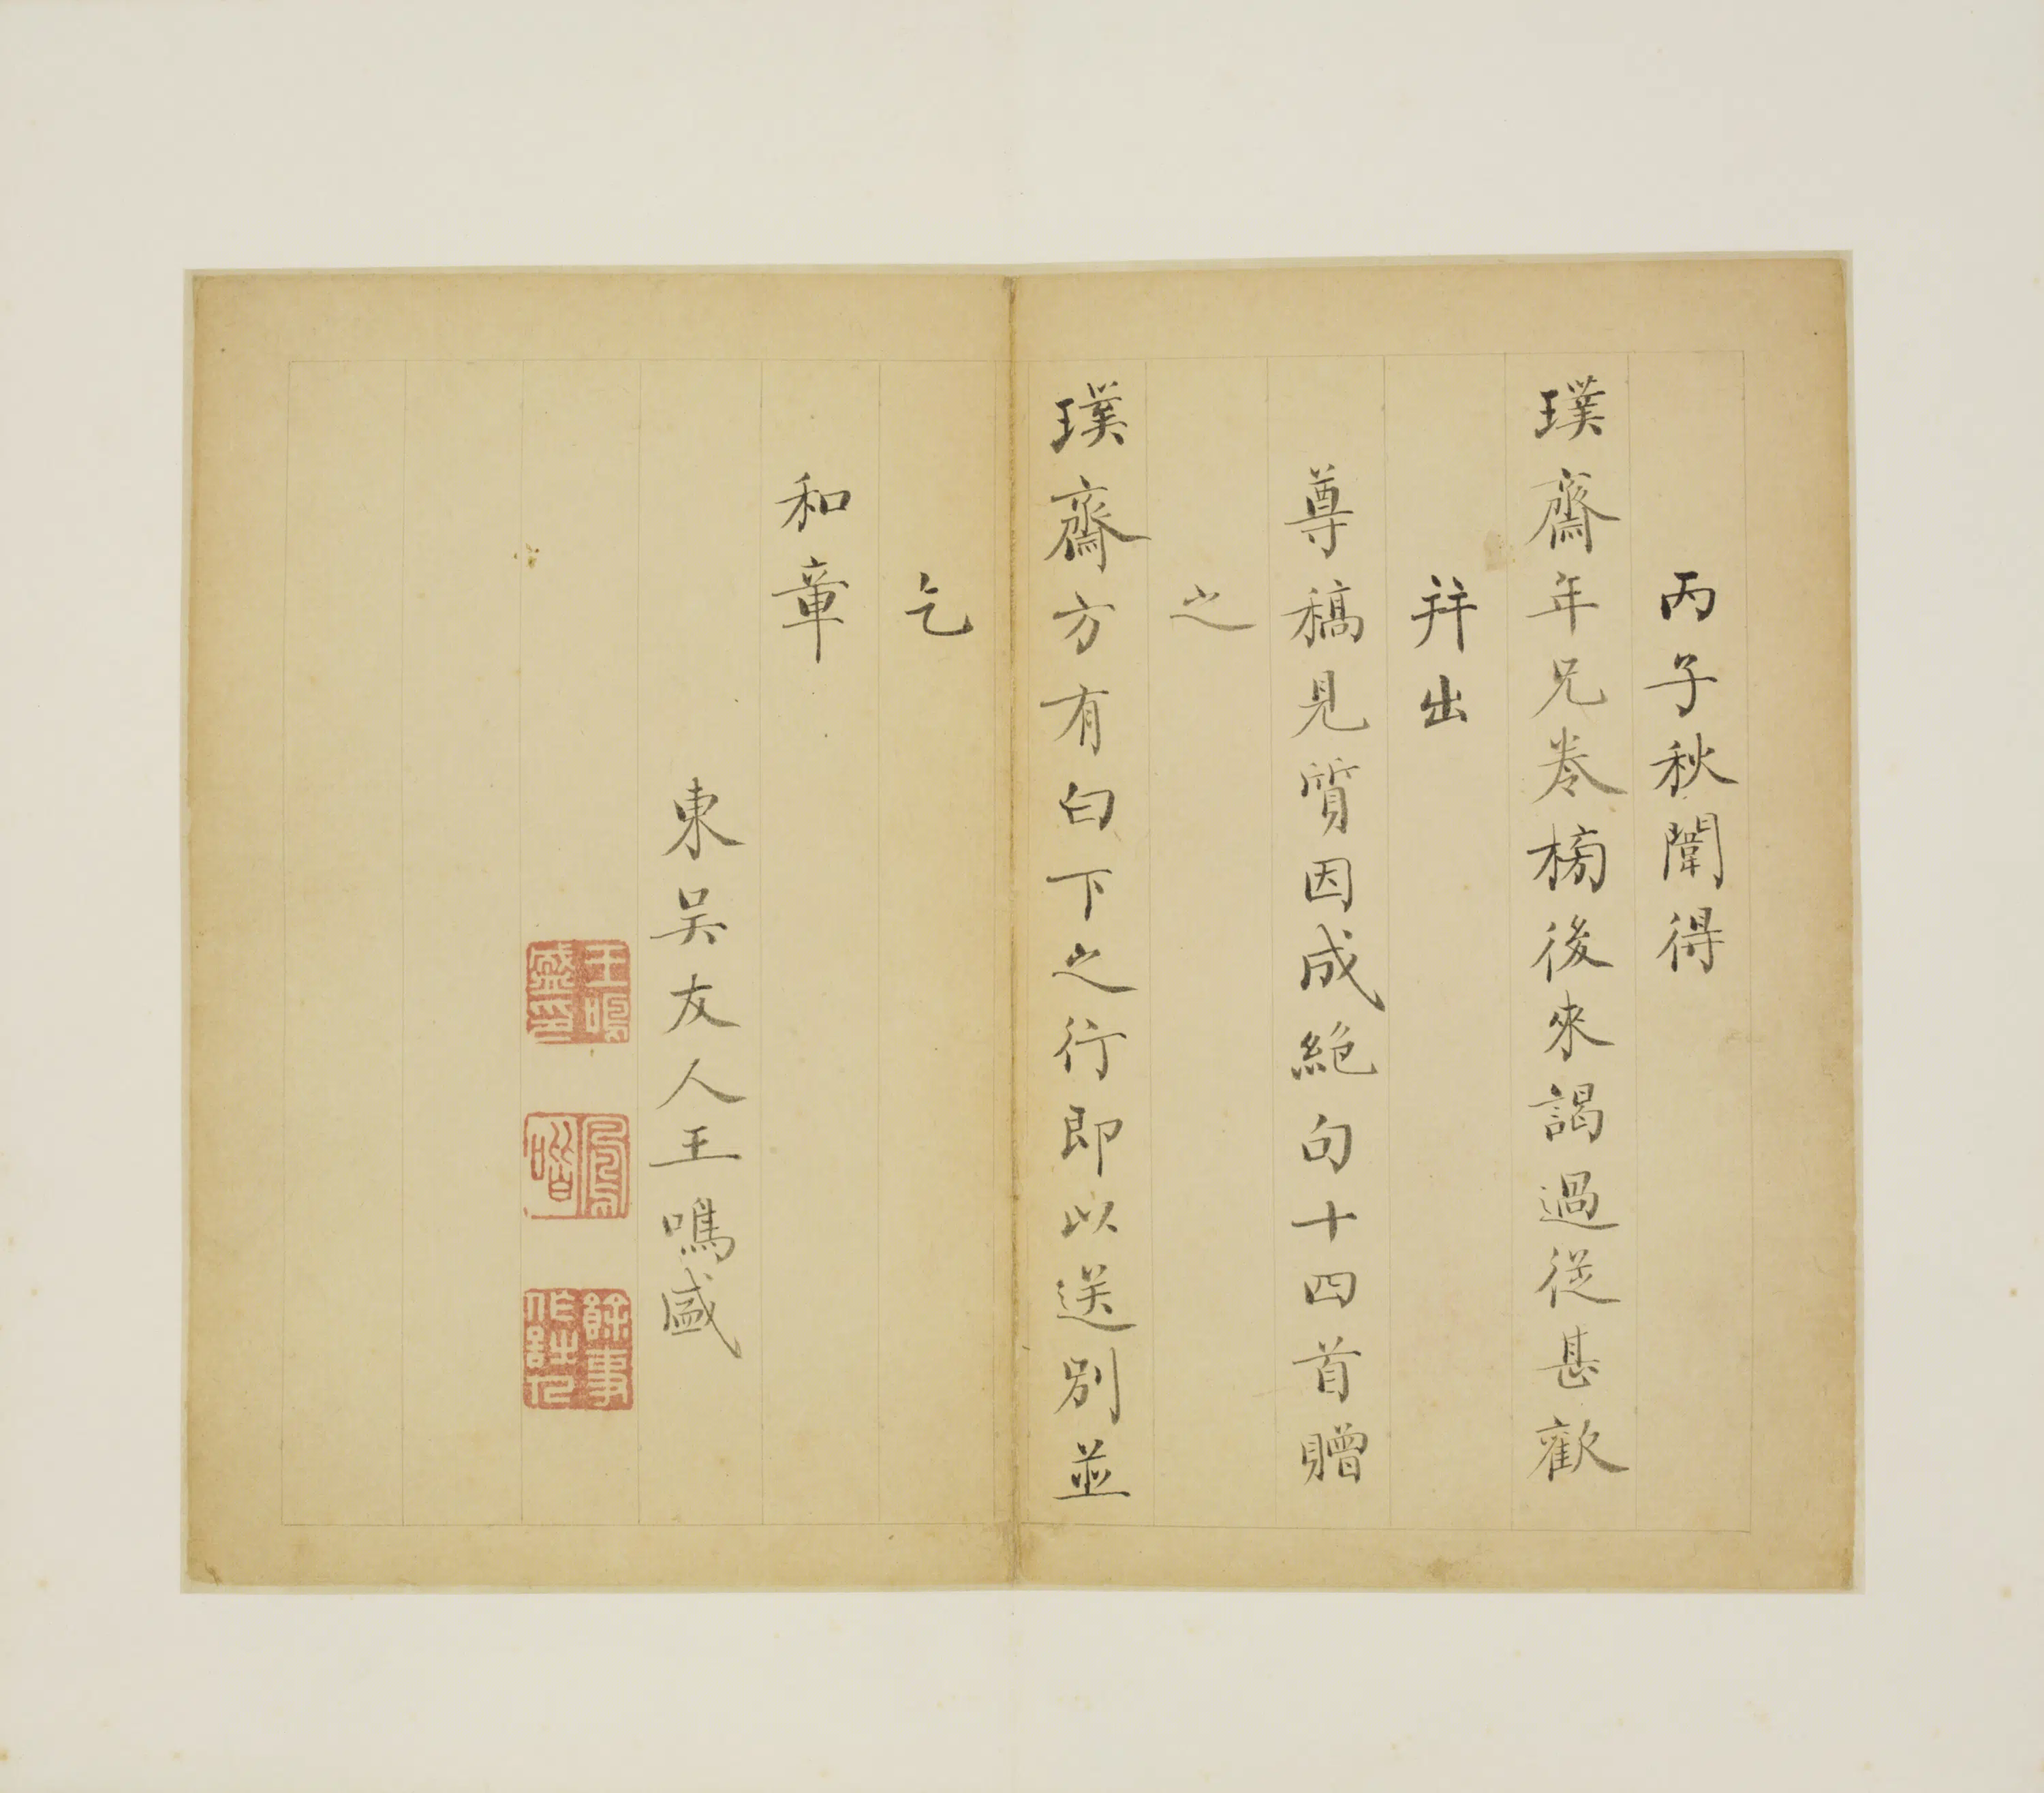 丙子秋闈得
璞齋年兄卷榜後來謁過從甚歡
并出
尊稿見質因成絕句十四首贈
之
璞齋方有白下之行即以送別並
乞
和章
東吳友人王鳴盛
王鳴盛印
鳳喈
餘事作詩人